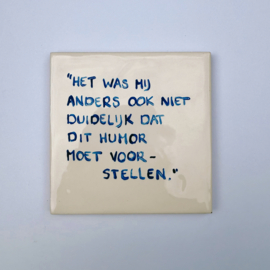 "HET WAS MIJ
ANDERS OOK NIET
DUIDELIJK DAT
DIT HUMOR
MOET VOOR-
STELLEN."